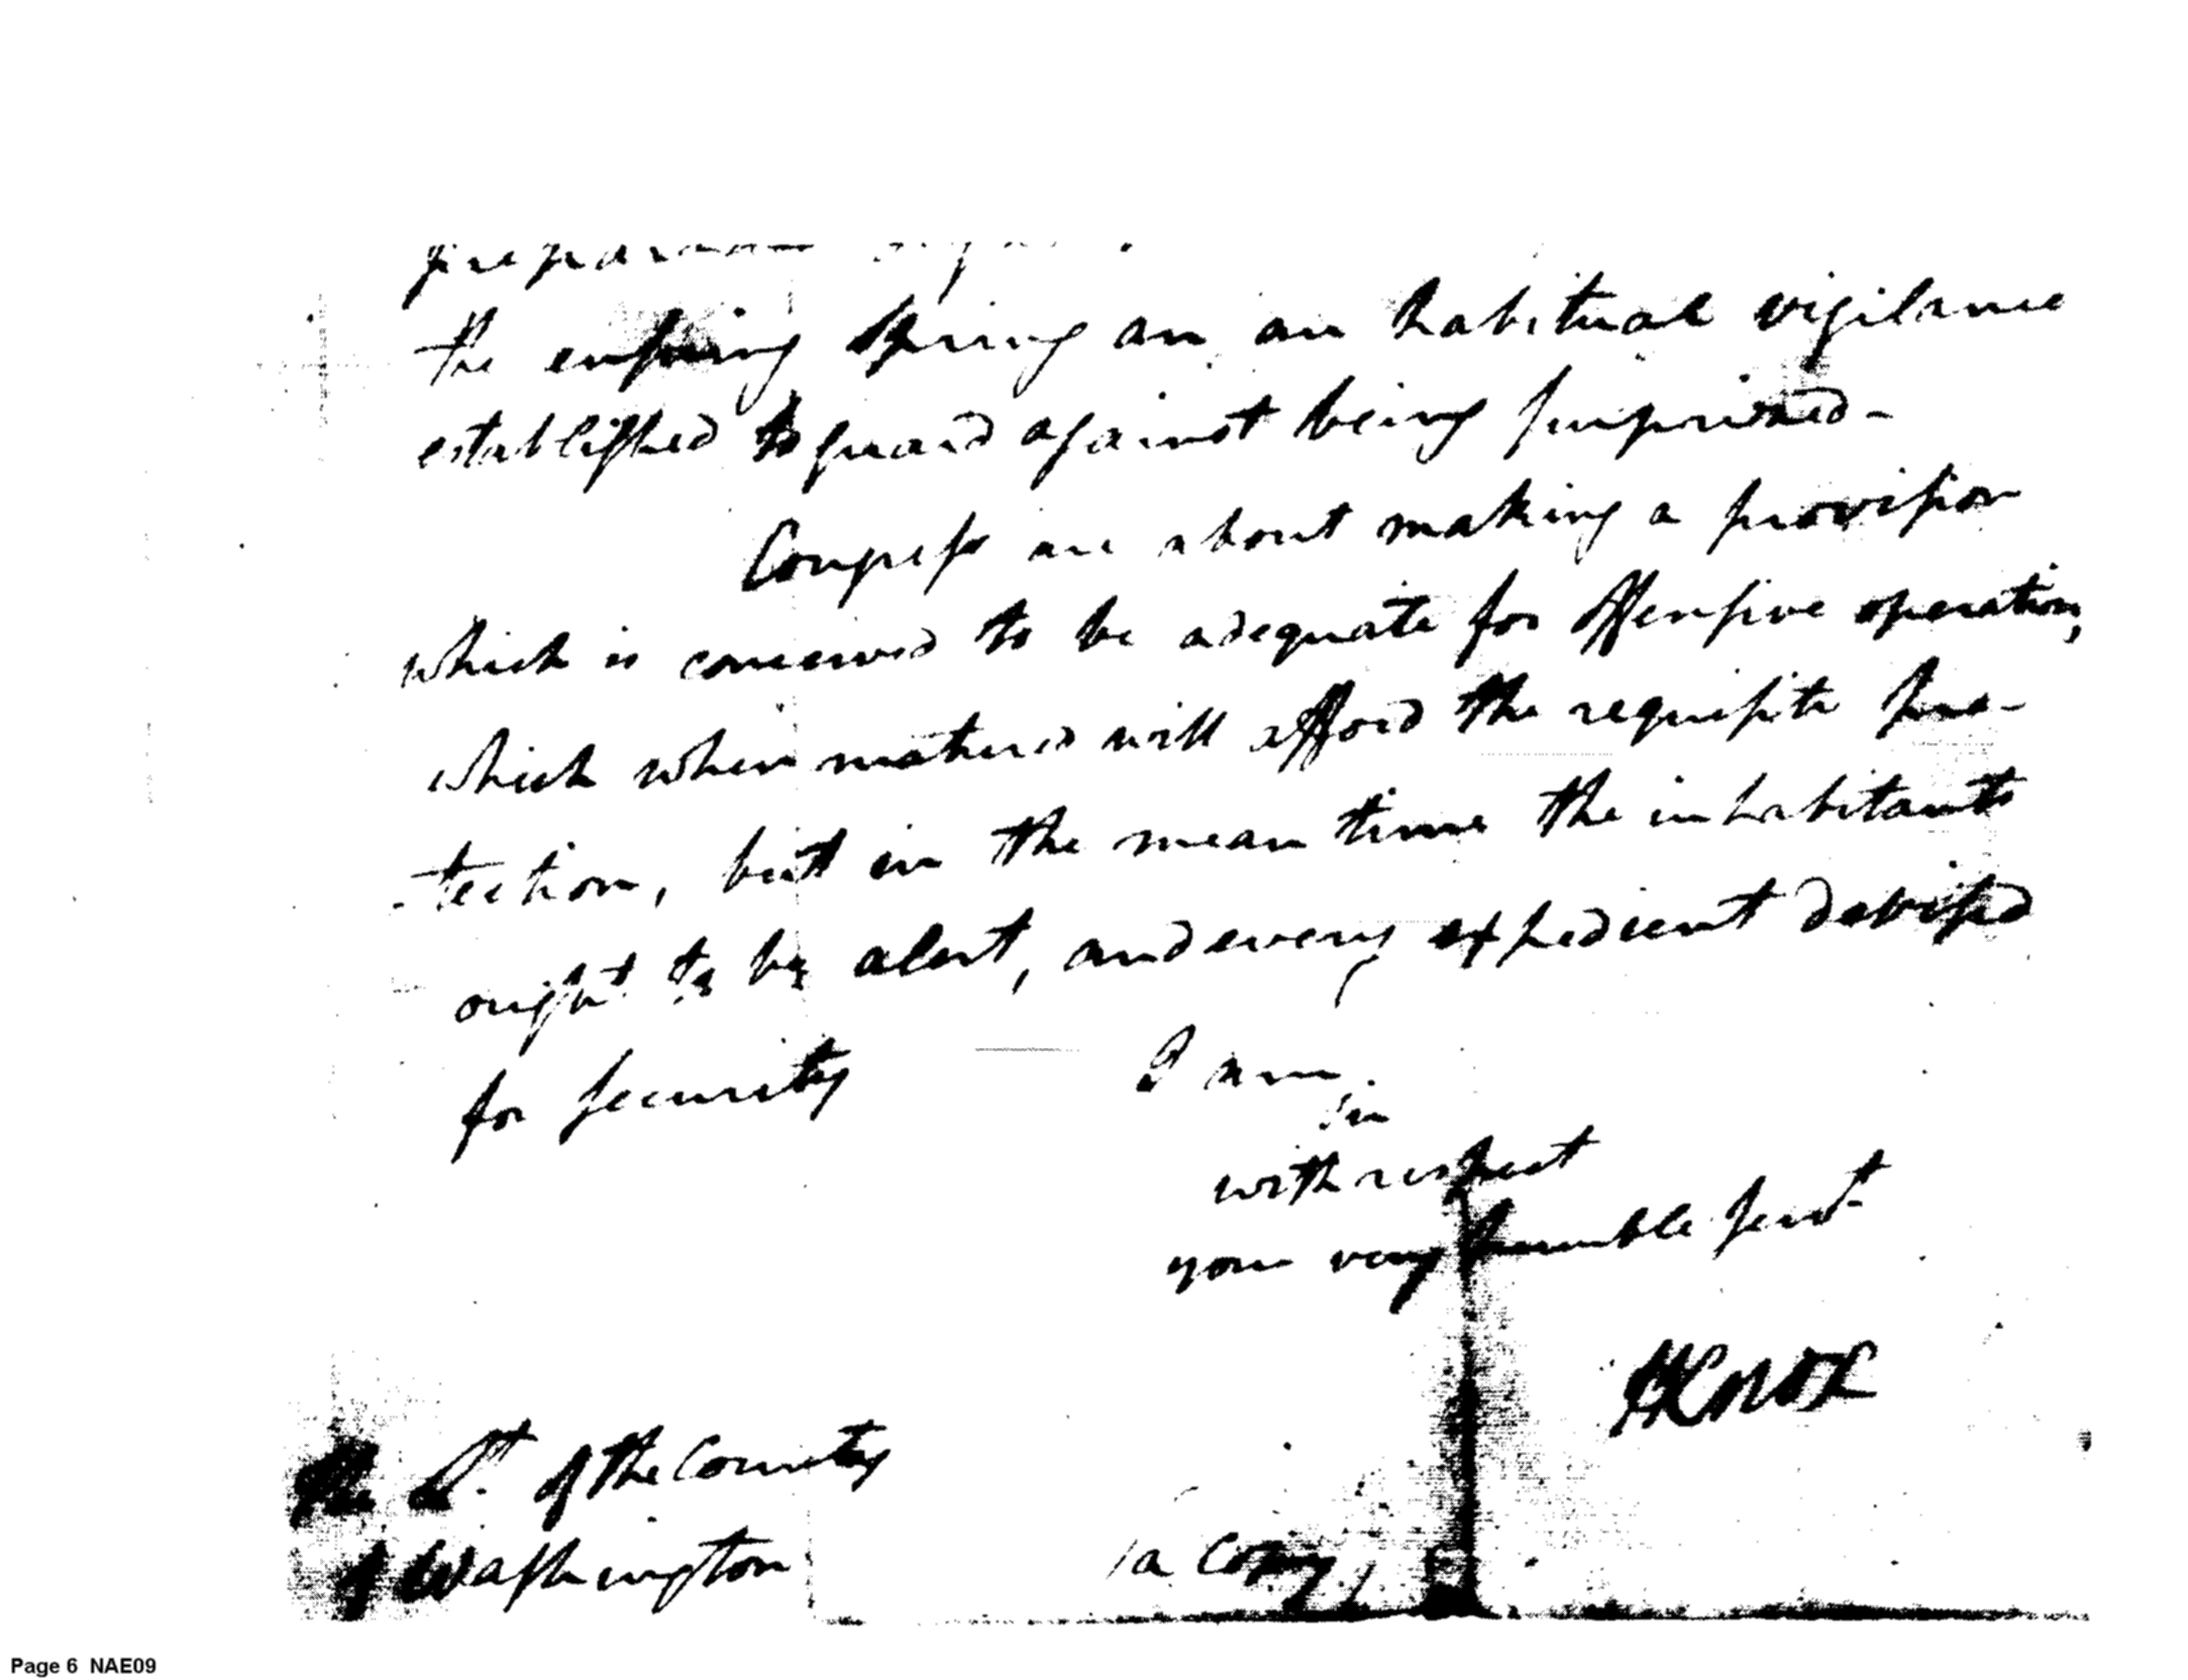 the ensuing Spring an an habitual vigilance
established to guard against being surprized-
Congress are about making a provision
which is conceived to be adequate for offensive operation,
which when matured will afford the requisite pro-
-tection, but in the mean time the inhabitants
ought to be alert, and every expedient devised
for security I am
Sir
with respect
your very humble servt
HKnox
The Lt. of the County
of Washington
(a copy)
Page 6 NAE09